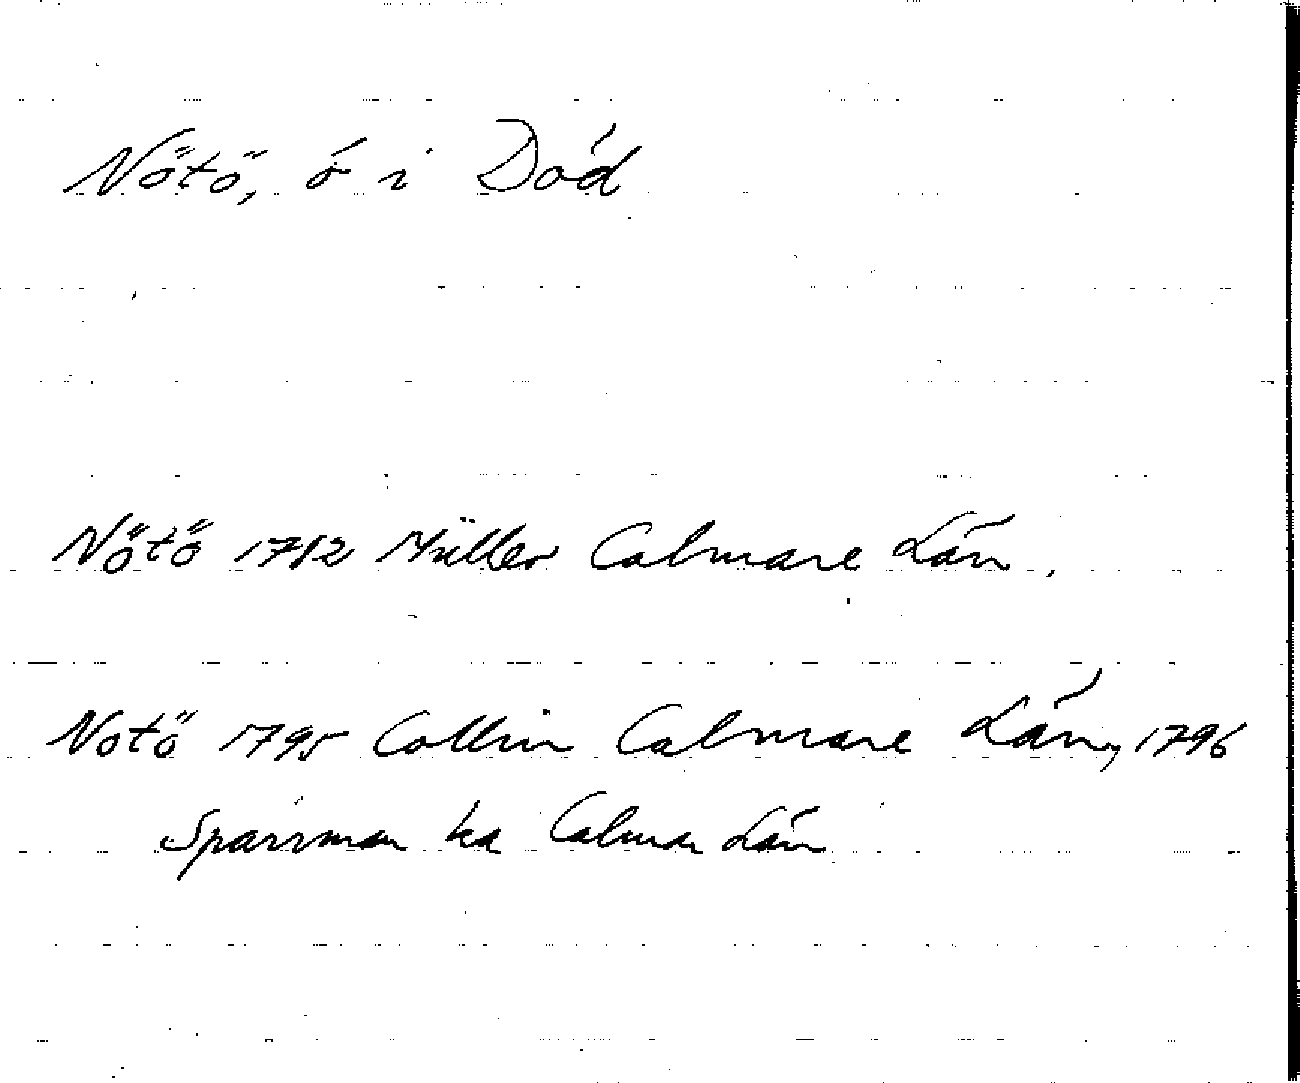 Nötö, ö i Död
Nötö 1782 Müller Calmare Län.
Notö 1795 Collin Calmare Län, 1796
Sparrman ka Calmar Län